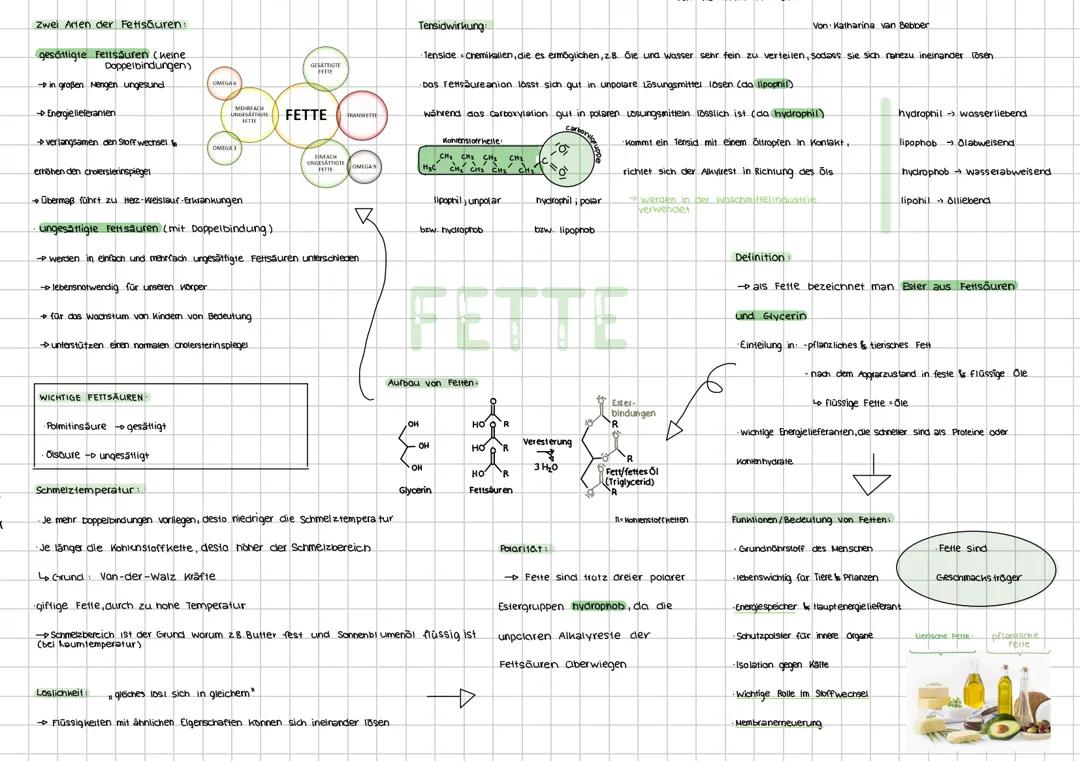 zwei Arten der Fettsäuren:
gesättigte Fettsäuren (keine
Doppelbindungen)
→ in großen Mengen ungesund
→ Energielieferanten
→ verlangsamen den Stoffwechsel &
erhöhen den cholersterinspiegel
→ Übermaß führt zu Herz-Kreislauf-Erkrankungen
· ungesättigte Fettsäuren (mit Doppelbindung)
→ werden in einfach und mehrfach ungesättigte Fettsäuren unterschieden
→ lebensnotwendig für unseren Körper
→ für das Wachstum von Kindern von Bedeutung
→ unterstützen einen normalen cholersterinspiegel
GESÄTTIGTE
FETTE
OMEGA 6
MEHRFACH
UNGESÄTTIGTE
FETTE
FETTE
TRANSFETTE
OMEGA 3
EINFACH
UNGESÄTTIGTE
FETTE
OMEGA 9
WICHTIGE FETTSÄUREN:
· Palmitinsäure → gesättigt
· Ölsäure → ungesättigt
Schmelztemperatur:
· Je mehr Doppelbindungen vorliegen, desto niedriger die Schmelztemperatur
· Je länger die Kohlenstoffkette, desto höher der Schmelzbereich
↳ Grund: Van-der-Walz Kräfte
· giftige Fette, durch zu hohe Temperatur
→ Schmelzbereich ist der Grund warum z.B. Butter fest und Sonnenblumenöl flüssig ist
(bei Raumtemperatur)
Löslichkeit: „gleiches löst sich in gleichem"
→ Flüssigkeiten mit ähnlichen Eigenschaften können sich ineinander lösen
Tensidwirkung:
· Tenside = Chemikalien, die es ermöglichen, z.B. Öle und Wasser sehr fein zu verteilen, sodass sie sich nahezu ineinander lösen
· Das Fettsäureanion lösst sich gut in unpolare Lösungsmittel lösen (da lipophil)
während das Carboxylation gut in polaren Lösungsmitteln lösslich ist (da hydrophil)
Kohlenstoffkette:
Carboxylgruppe
H₃C CH₂ CH₂ CH₂ CH₂ CH₂ CH₂ CH₂ CH₂ C O O
lipophil, unpolar
hydrophil; polar
bzw. hydrophob
bzw. lipophob
· Kommt ein Tensid mit einem Öltropfen in Kontakt,
richtet sich der Alkylrest in Richtung des Öls
→ werden in der Waschmittelindustrie
verwendet
Von: Katharina van Bebber
hydrophil → wasserliebend
lipophob → ölabweisend
hydrophob → wasserabweisend
lipohil → ölliebend
FETTE
Aufbau von Fetten:
OH
OH
OH
Glycerin
O
HO R
O
HO R
O
HO R
Fettsäuren
Veresterung
3 H₂O
Ester-
bindungen
O
O R
O
O R
O
O R
Fett/fettes Öl
(Triglycerid)
R= Kohlenstoffketten
Polarität:
→ Fette sind trotz dreier polarer
Estergruppen hydrophob, da die
unpolaren Alkalyreste der
Fettsäuren überwiegen
Definition:
→ als Fette bezeichnet man Ester aus Fettsäuren
und Glycerin
· Einteilung in: - pflanzliches & tierisches Fett
- nach dem Aggrarzustand in feste & flüssige Öle
↳ flüssige Fette = Öle
· Wichtige Energielieferanten, die schneller sind als Proteine oder
Kohlenhydrate
Funktionen/Bedeutung von Fetten:
· Grundnährstoff des Menschen
· lebenswichtig für Tiere & Pflanzen
· Energiespeicher & Hauptenergielieferant
· Schutzpolster für innere Organe
· Isolation gegen Kälte
· Wichtige Rolle im Stoffwechsel
· Membranerneuerung
· Fette sind
Geschmacksträger
tierische Fette
pflanzliche
Fette